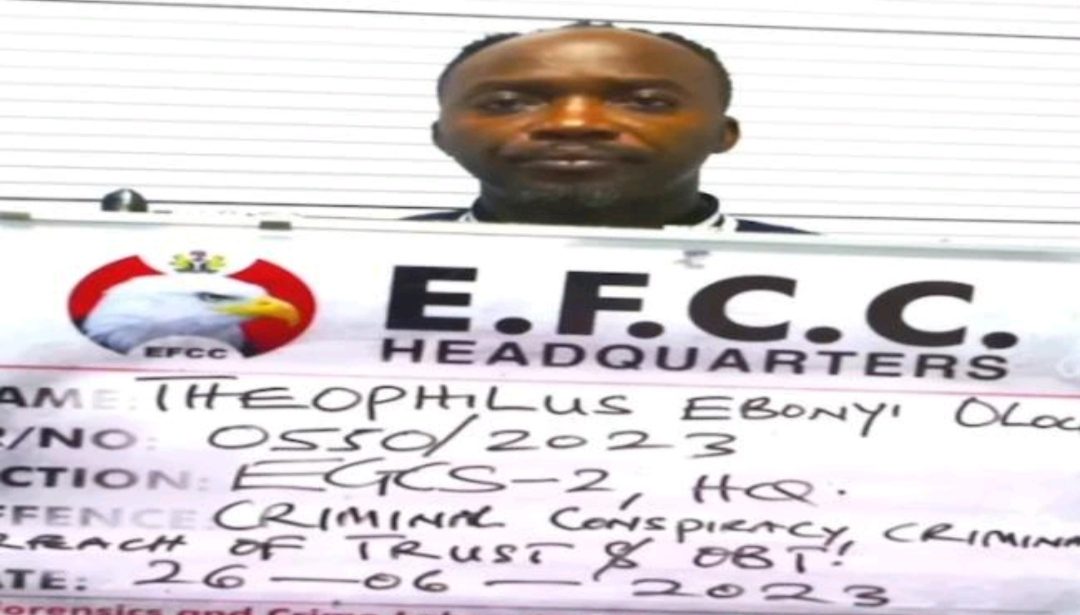 EFCC
E.F.C.C.
HEADQUARTERS
AME: THEOPHILUS EBONYI OLO
R/NO: 0550/2023
CTION: EGCS-2, HQ.
FFENCE: CRIMINAL CONSPIRACY, CRIMINA
REACH OF TRUST & OBT!
ATE: 26-06-2023
orensics and Crime